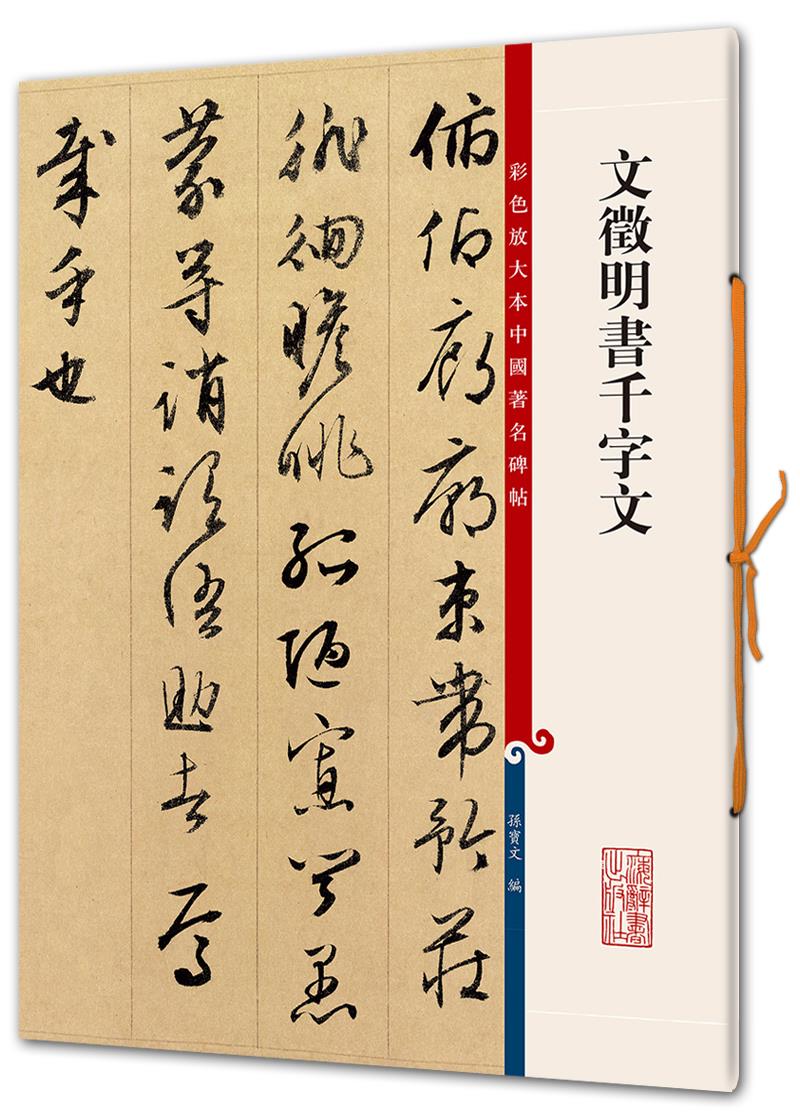 文徵明書千字文
上海辭書
出版社
彩色放大本中國著名碑帖
孫寶文 編
俯仰廊廟束帶矜莊
徘徊瞻眺孤陋寡聞愚
蒙等誚謂語助者焉
哉乎也